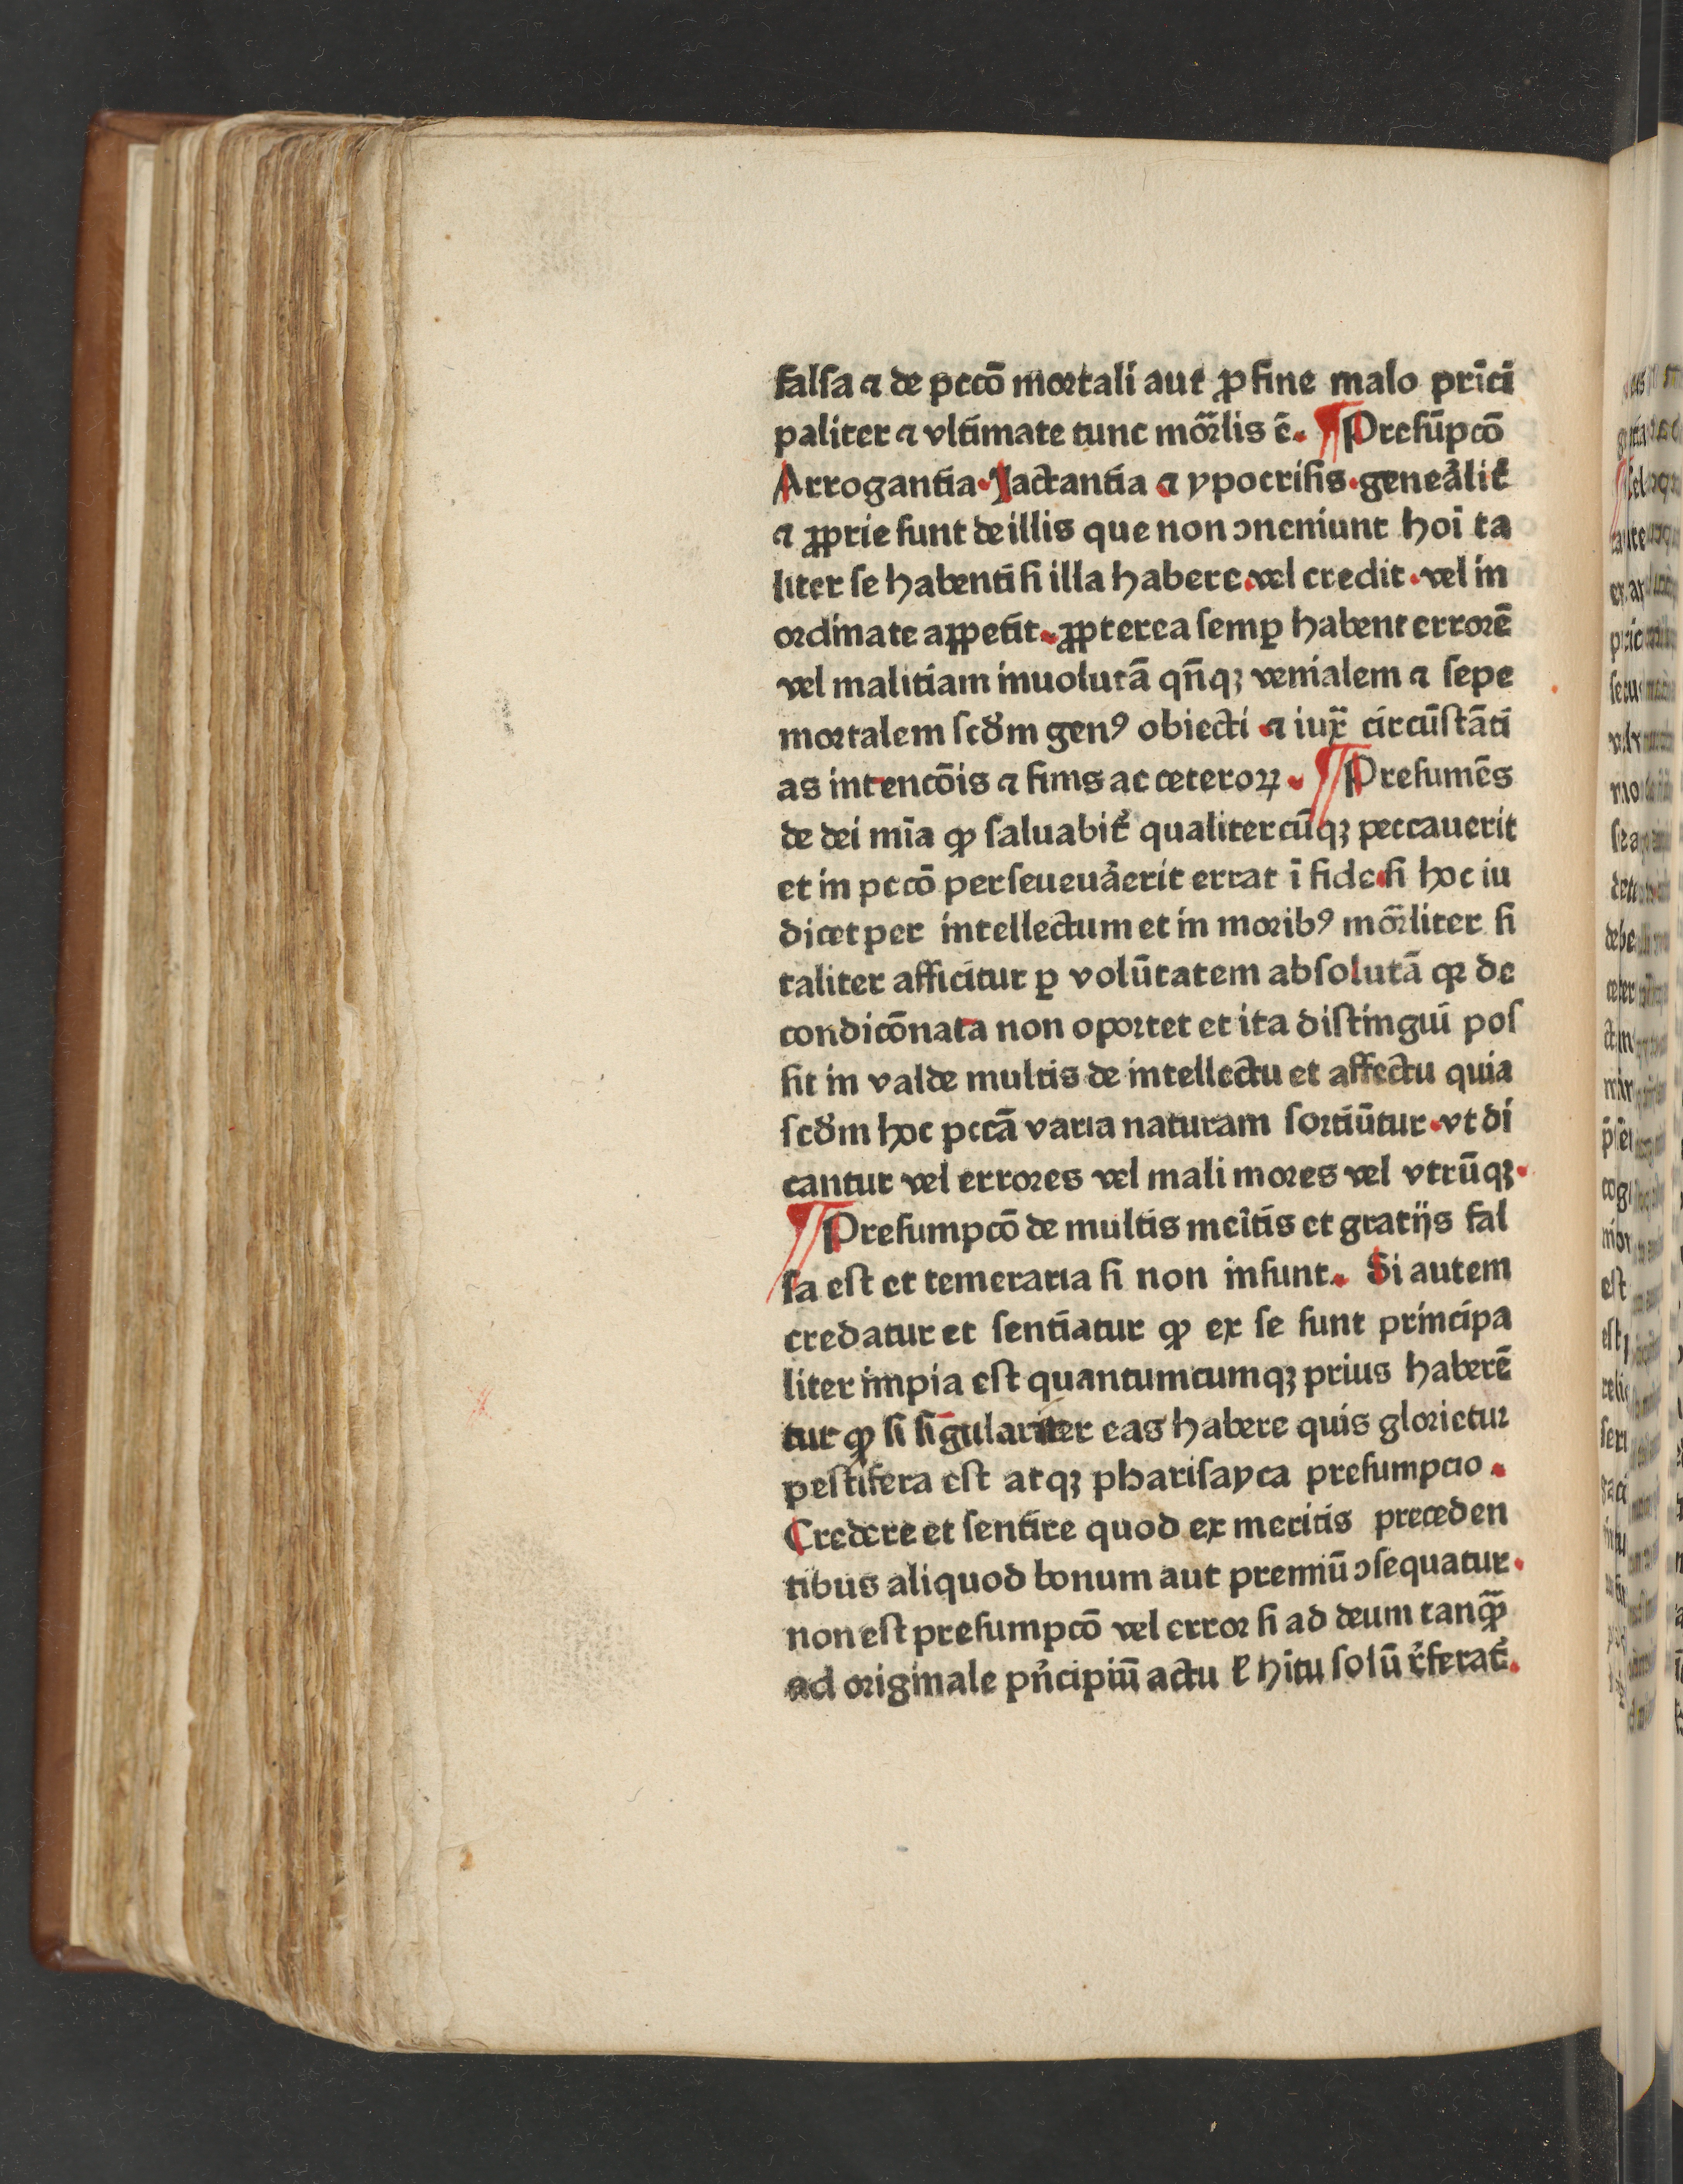 falſa ⁊ de pccō mortali aut ꝓ fine malo prīci
paliter ⁊ vltimate tunc mōrlis ē. ¶ Preſūpcō
Arrogantia. Jactantia ⁊ ypocriſis. geneálit̉
⁊ ꝓprie ſunt de illis que non ↄueniunt hoī ta
liter ſe habenti ſi illa habere. vel credit. vel in
ordinate appetit. ꝓpterea ſemꝑ habent errorē
vel malitiam inuolutā qn̄qꝫ venialem ⁊ ſepe
mortalem ſcd̓m genꝰ obiecti ⁊ iux̄ circūſtāti
as intencōis ⁊ finis ac ceteroꝝ. ¶ Preſumēs
de dei mīa ꝙ ſaluabit̉ qualitercūqꝫ peccauerit
et in pccō perſeueuáerit errat ī fide ſi hoc iu
dicet per intellectum et in moribꝰ mōrliter ſi
taliter afficitur ꝑ volūtatem abſolutā qꝛ de
condicōnata non oportet et ita diſtingui poſ
ſit in valde multis de intellectu et affectu quia
ſcd̓m hoc pccā varia naturam ſortiūtur. vt di
cantur vel errores vel mali mores vel vtrūqꝫ.
¶ Preſumpcō de multis meītis et gratijs fal
ſa eſt et temeraria ſi non inſunt. Si autem
credatur et ſentiatur ꝙ ex ſe ſunt principa
liter impia eſt quantumcumqꝫ prius haberē
tur ꝙ ſi ſigulariter eas habere quis glorietur
peſtifera eſt atqꝫ phariſayca preſumpcio.
Credere et ſentire quod ex meritis preceden
tibus aliquod bonum aut premiū ↄſequatur.
non eſt preſumpcō vel error ſi ad deum tanꝙ̄
ad originale pn̓cipiū actu ł hitu ſolū r̓ferat̉.